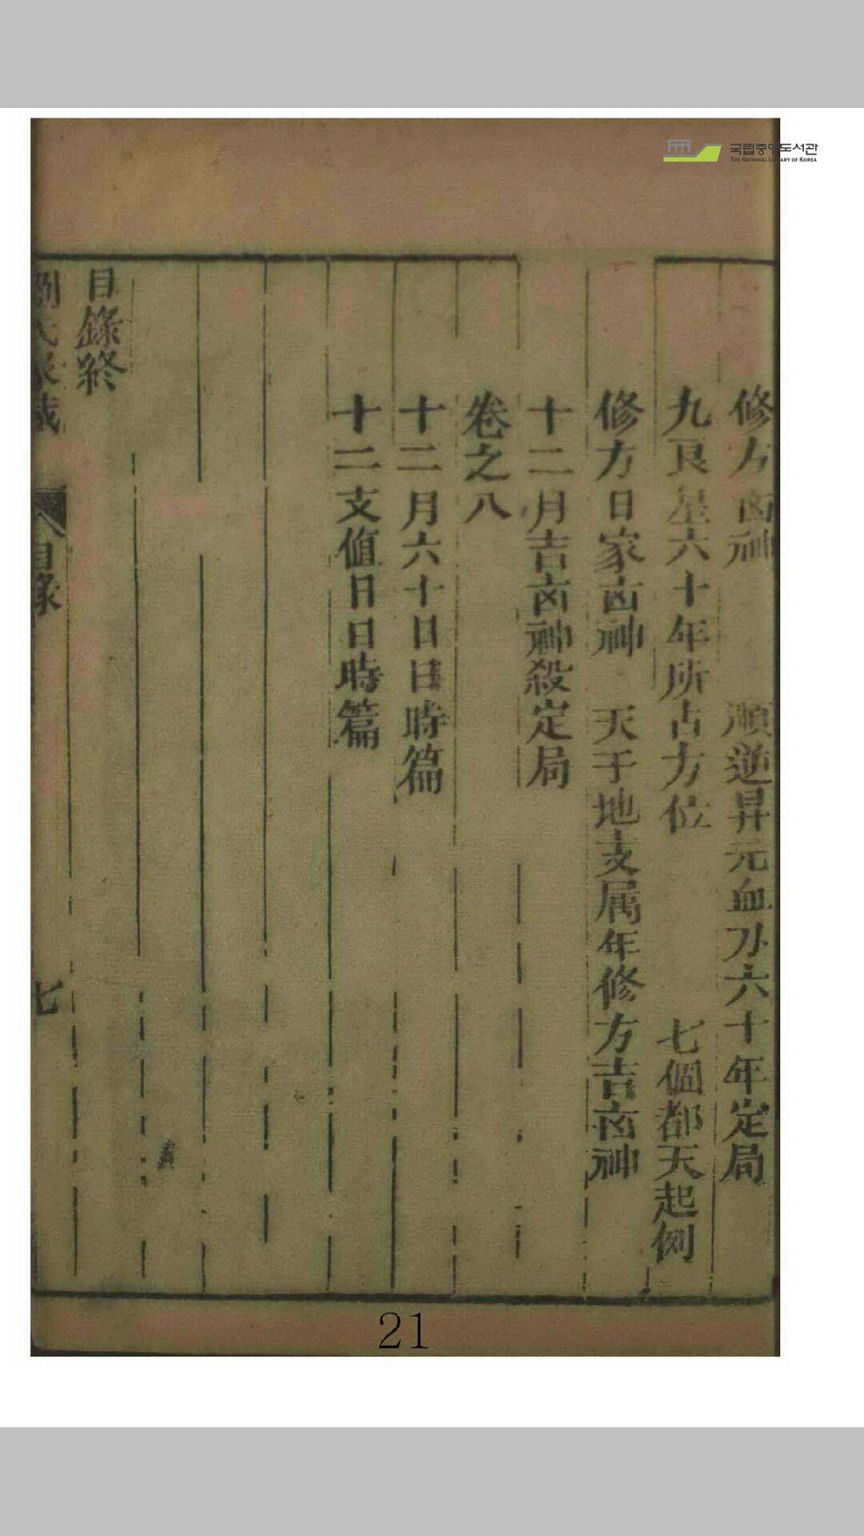 국립중앙도서관
THE NATIONAL LIBRARY OF KOREA
修方凶神 順逆昇元血刃六十年定局
九良星六十年所占方位 七個都天起例
修方日家凶神 天干地支属年修方吉凶神
十二月吉凶神殺定局
卷之八
十二月六十日日時篇
十二支値日日時篇
目錄終
劉氏家藏 目錄 七
21